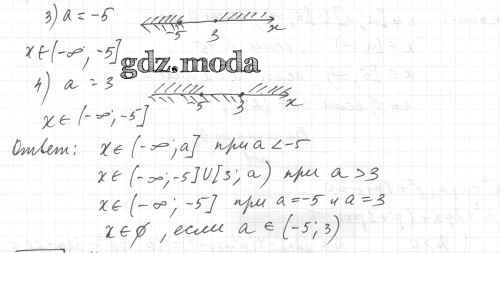 3) a = -5
-5 3 x
x ∈ (-∞; -5]
gdz.moda
4) a = 3
-5 3 x
x ∈ (-∞; -5]
Ответ: x ∈ (-∞; a] при a < -5
x ∈ (-∞; -5] U [3; a) при a > 3
x ∈ (-∞; -5] при a = -5 и a = 3
x ∈ ∅, если a ∈ (-5; 3)